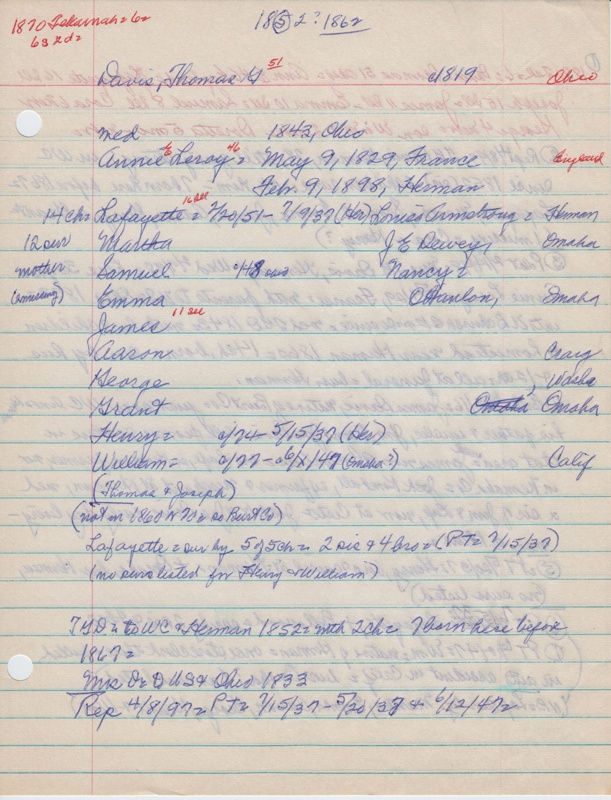 1870 Tekamah = 62 1852? 1862
63 2d =
Davis, Thomas G 51 c/1819 Ohio
med 1843, Ohio
Annie E Leroy = 46 May 9, 1829, France England
Feb. 9, 1898, Herman
14 chs Lafayette = 7/20/51 - 7/9/37 (Her) Louise Armstrong = Herman
12 sur Martha J E Dewey, Omaha
mother Samuel c/48 Nancy =
Emma O'Hanlon, Omaha
James
Aaron Craig
George , Idaho
Grant Omaha Omaha
Henry = c/74 - 5/15/37 (Her)
William = c/77 - c6/x/47 (Omaha?) Calif
(Thomas & Joseph)
(not in 1860 N 70 = so Burt Co)
Lafayette = sur by 5 of 5 ch = 2 sis & 4 bro = (PT = 7/15/37)
(no survs listed for Henry & William)
TYD = to WC & Herman 1852 = with 2 ch = 7 born here before
1867 =
Mrs D = to US & Ohio 1833
Rep 4/8/97 = PT = 7/15/37 - 5/20/37 & 6/12/47 =